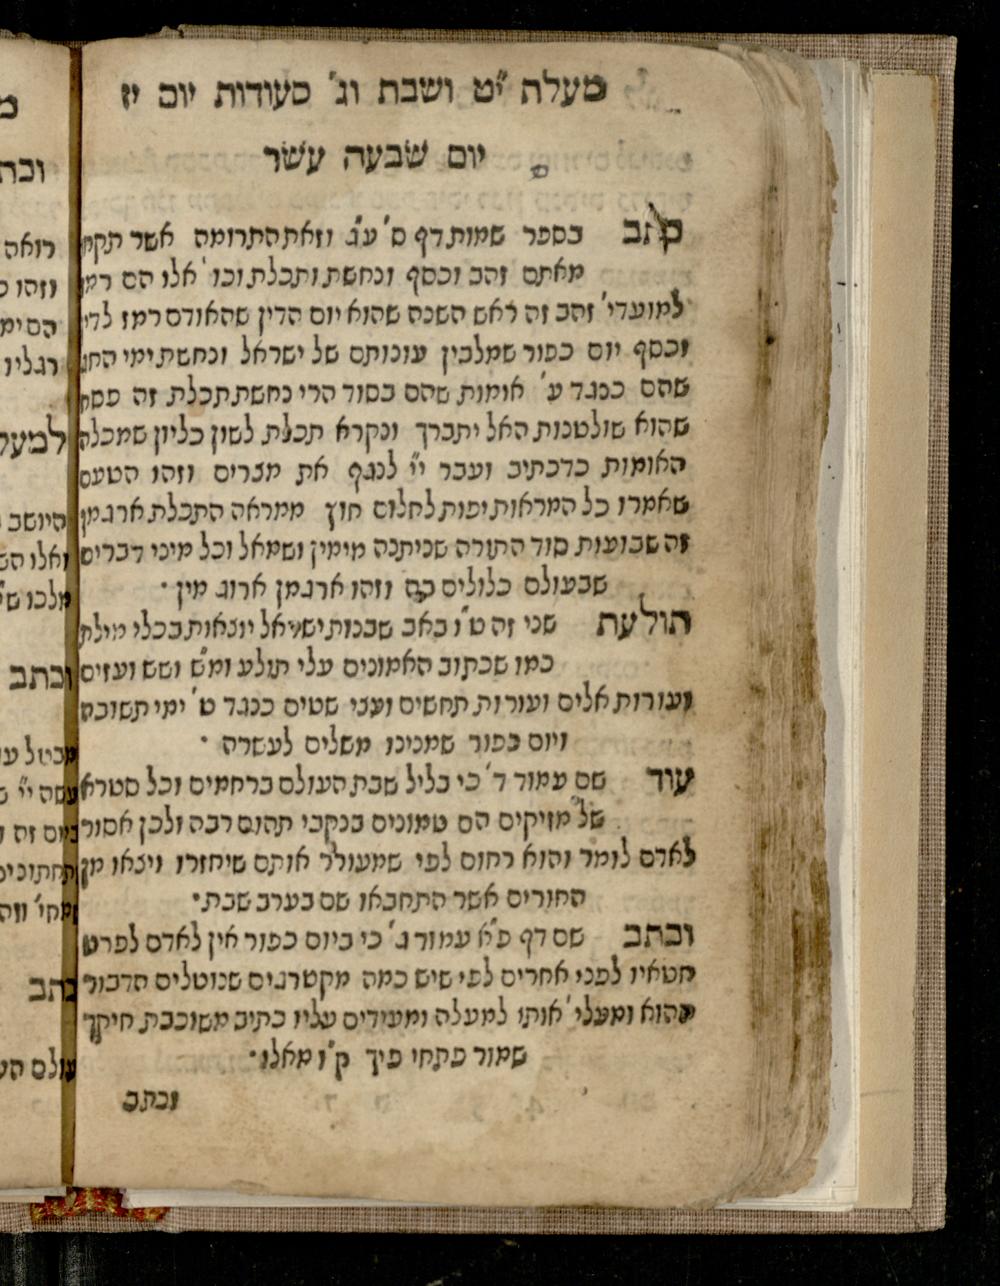 מעלת י"ט ושבת וג' סעודות יום יז
יום שבעה עשר
כתב בספר שמות דף ס' ע"ג וזאת התרומה אשר תקחו
מאתם זהב וכסף ונחשת ותכלת וכו' אלו הם רמז
למועדי' זהב זה ראש השנה שהוא יום הדין שהאודם רמז לדין
וכסף יום כפור שמלבין עונותם של ישראל ונחשת ימי החג
שהם כנגד ע' אומות שהם בסוד הרי נחשת תכלת זה פסח
שהוא שולטנות האל יתברך ונקרא תכלת לשון כליון שמכלה
האומות כדכתיב ועבר י"י לנגף את מצרים וזהו הטעם
שאמרו כל המראות יפות לחלום חוץ ממראה התכלת ארגמן
זה שבועות סוד התורה שניתנה מימין ושמאל וכל מיני דברים
שבעולם כלולים בה וזהו ארגמן ארוג מין ·
תולעת שני זה ט"ו באב שבנות ישראל יוצאות בכלי מילת
כמו שכתוב האמונים עלי תולע ומ"ש ושש ועזים
ועורות אלים ועורות תחשים ועצי שטים כנגד ט' ימי תשובה
ויום כפור שמכינו משלים לעשרה ·
עוד שם עמוד ד' כי בליל שבת העולם ברחמים וכל סטרא
של מזיקים הם טמונים בנקבי תהום רבה ולכן אסור
לאדם לומר והוא רחום לפי שמעורר אותם שיחזרו ויצאו מן
החורים אשר התחבאו שם בערב שבת ·
וכתב שם דף פ"א עמוד ג' כי ביום כפור אין לאדם לפרט
חטאיו לפני אחרים לפי שיש כמה מקטרגים שנוטלים הדבור
ההוא ומעלי' אותו למעלה ומעידים עליו כתיב משוכבת חיקך
שמור פתחי פיך ק"ו מאלו ·
וכתב